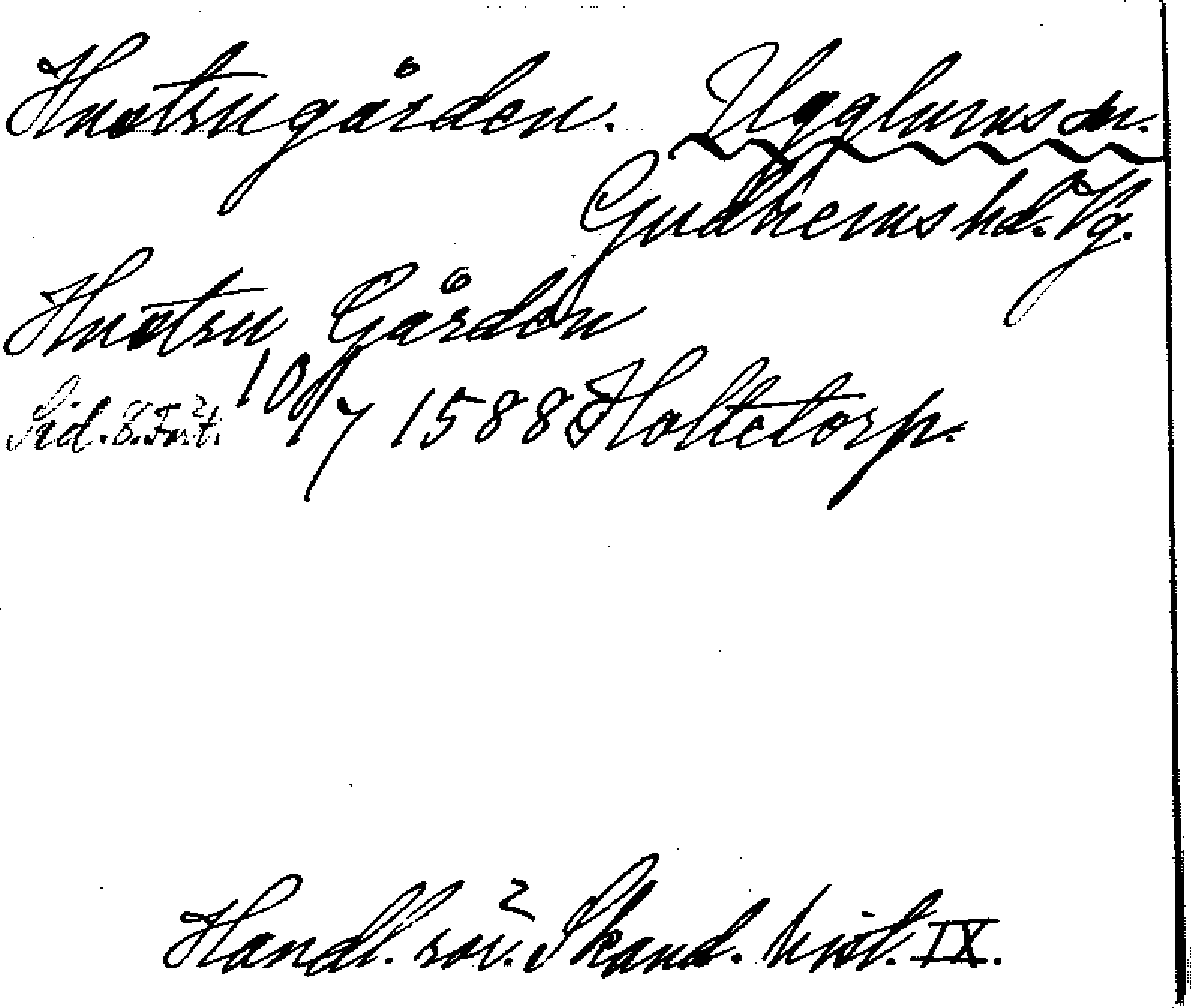 Hnotrugården. Ugglums sn.
Gudhems hd. Vg.
Hnotru Gården
Sid. 8. 10/7 1588 Holtetorp.
Handl. rör. Skand. hist. IX.